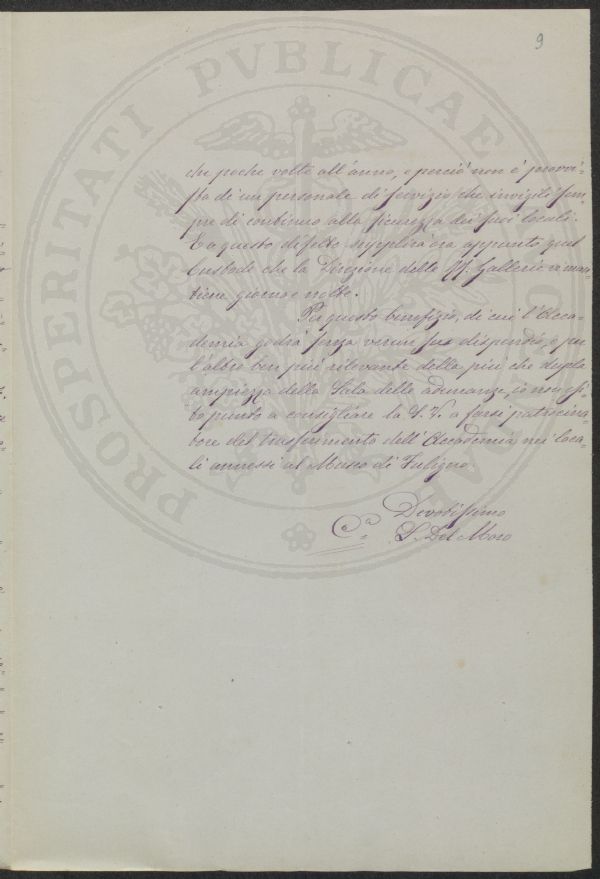 9
che poche volte all'anno, e perciò non è provvi-
sta di un personale di servizio che invigili sem-
pre di continuo alla sicurezza dei suoi locali.
E a questo difetto supplirà ora appunto quel
Custode che la Direzione delle RR. Gallerie vi man-
tiene giorno e notte.
Per questo benefizio, di cui l'Acca-
demia godrà senza verun suo dispendio, e per
l'altro ben più rilevante della più che dupla
ampiezza della Sala delle adunanze, io non esi-
to punto a consigliare la S. V. a farsi patrocina-
tore del trasferimento dell'Accademia nei loca-
li annessi al Museo di Fuligno.
Devotissimo
Ca.
L. Del Moro
PROSPERITATI PVBLICAE